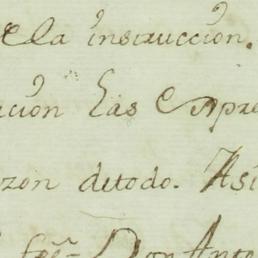 ela instruccion.
acion las expre
azon detodo. Asi
Don Anto